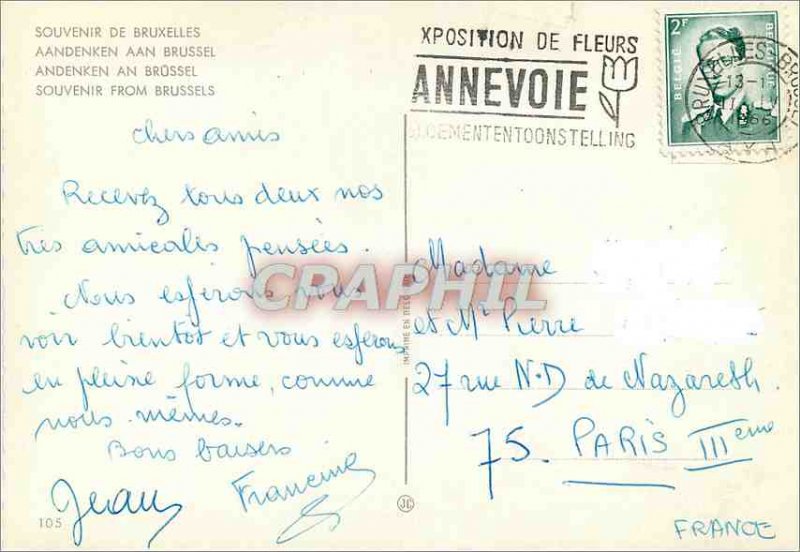 SOUVENIR DE BRUXELLES
AANDENKEN AAN BRUSSEL
ANDENKEN AN BRÜSSEL
SOUVENIR FROM BRUSSELS
XPOSITION DE FLEURS
ANNEVOIE
OEMENTENTOONSTELLING
2F
BELGIË
chers amis
Recevez tous deux nos
très amicales pensées.
Nous espérons vous
voir bientot et vous espérons
en pleine forme, comme
nous mêmes.
Bons baisers
Jean Francine
105
CPARPHIL
IMPRIMÉ EN BELG
JG
Madame
et Mr Pierre
27 rue N.D de Nazareth.
75. PARIS IIIeme
FRANCE